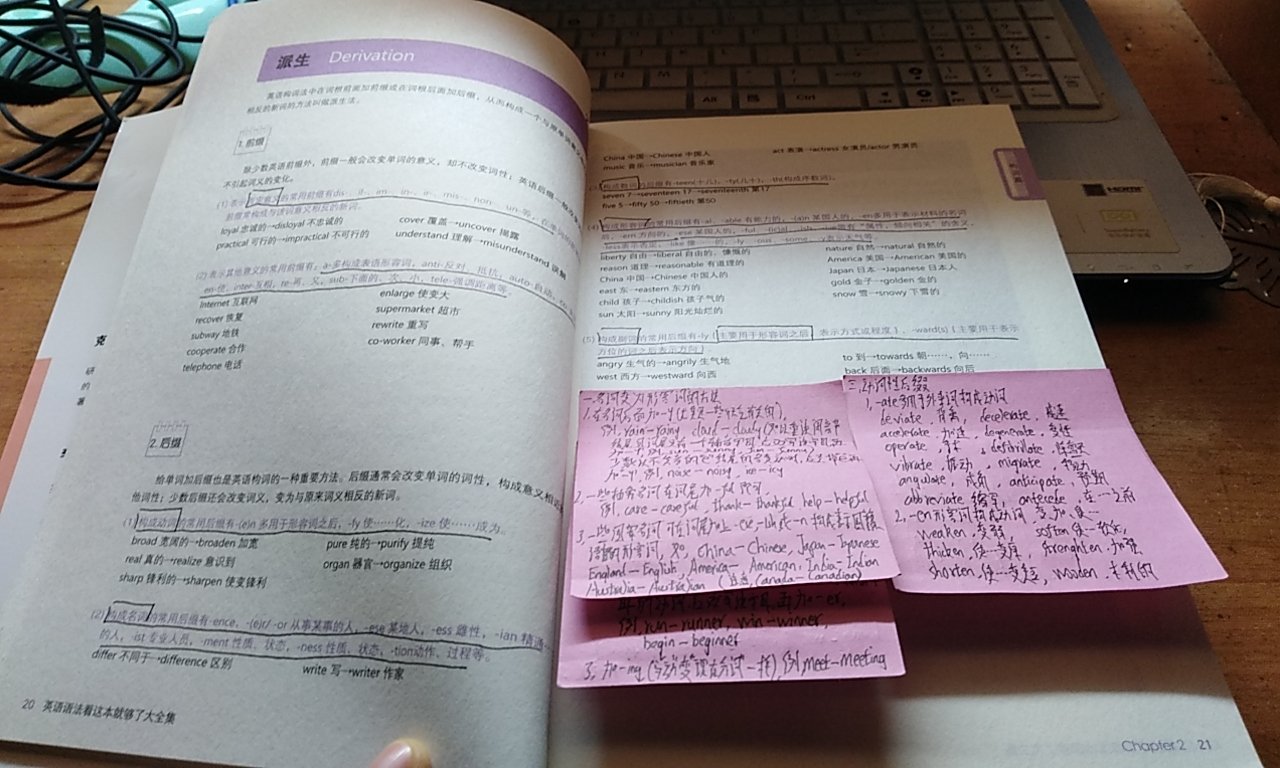 派生 Derivation
英语构词法中在词根前面加前缀或在词根后面加后缀，从而构成一个与原单词意
相反的新词的方法叫做派生法。
1. 前缀
除少数英语前缀外，前缀一般会改变单词的意义，却不改变词性；英语后缀一般改
不引起词义的变化。
(1) 表示否定意义的常用前缀有dis-, il-, im-, in-, ir-, mis-, non-, un-等，在单词的
前缀常构成与该词意义相反的新词。
loyal 忠诚的→disloyal 不忠诚的
cover 覆盖→uncover 揭露
practical 可行的→impractical 不可行的
understand 理解→misunderstand 误解
(2) 表示其他意义的常用前缀有: a-多构成表语形容词，anti-反对、抵抗，auto-自动，co-
en-使，inter-互相，re-再、又，sub-下面的、次、小，tele-强调距离等。
Internet 互联网
enlarge 使变大
recover 恢复
supermarket 超市
subway 地铁
rewrite 重写
cooperate 合作
co-worker 同事、帮手
telephone 电话
2. 后缀
给单词加后缀也是英语构词的一种重要方法。后缀通常会改变单词的词性，构成意义相近
他词性；少数后缀还会改变词义，变为与原来词义相反的新词。
(1) 构成动词的常用后缀有-(e)n 多用于形容词之后，-fy 使……化，-ize 使……成为。
broad 宽阔的→broaden 加宽
pure 纯的→purify 提纯
real 真的→realize 意识到
organ 器官→organize 组织
sharp 锋利的→sharpen 使变锋利
(2) 构成名词的常用后缀有-ence，-(e)r/-or 从事某事的人，-ese 某地人，-ess 雌性，-ian 精通…
的人，-ist 专业人员，-ment 性质、状态，-ness 性质、状态，-tion动作、过程等。
differ 不同于→difference 区别
write 写→writer 作家
20 英语语法看这本就够了大全集
克
研
的
著
China 中国→Chinese 中国人
act 表演→actress 女演员/actor 男演员
music 音乐→musician 音乐家
(3) 构成数词的后缀有-teen(十几)，-ty(几十)，-th(构成序数词)。
seven 7→seventeen 17→seventeenth 第17
five 5→fifty 50→fiftieth 第50
(4) 构成形容词的常用后缀有-al，-able 有能力的，-(a)n 某国人的，-en多用于表示材料的名词
后，-ern 方向的，-ese 某国人的，-ful，-(ic)al，-ish，-ive带有“属性、倾向相关”的含义，
-less表示否定，-like 像……的，-ly，-ous，-some，-y表示天气等。
liberty 自由→liberal 自由的，慷慨的
nature 自然→natural 自然的
reason 道理→reasonable 有道理的
America 美国→American 美国的
China 中国→Chinese 中国人的
Japan 日本→Japanese 日本人
east 东→eastern 东方的
gold 金子→golden 金的
child 孩子→childish 孩子气的
snow 雪→snowy 下雪的
sun 太阳→sunny 阳光灿烂的
(5) 构成副词的常用后缀有-ly（主要用于形容词之后，表示方式或程度），-ward(s)（主要用于表示
方位的词之后表示方向）
angry 生气的→angrily 生气地
to 到→towards 朝……，向……
west 西方→westward 向西
back 后面→backwards 向后
一.名词变为形容词的方法
1.在名词后面加-y
例，rain-rainy, cloud-cloudy
例, noise-noisy, ice-icy
2.一些抽象名词在词尾加-ful 即可
例, care-careful, thank-thankful, help-helpful
China-Chinese, Japan-Japanese
England-English, America-American, India-Indian
Australia-Australian (注意 Canada-Canadian)
例, run-runner, win-winner,
begin-beginner
3, 加-ing 例 meet-meeting
三.动词性后缀
1, -ate多用于外来词构成动词
deviate, 背离, decelerate, 减速
accelerate, 加速, degenerate, 变性
operate, defibrillate
vibrate, 振动, migrate, 移动
angulate, 成角, anticipate, 预期
abbreviate 缩写, antecede, 在…之前
2, -en形容词构成动词
weaken, 变弱, soften 使…软化
thicken, 使…变厚, strenghten, 加强
shorten, 使…变短, wooden, 木制的
HDMI
Alt
Ctrl
Chapter 2 21